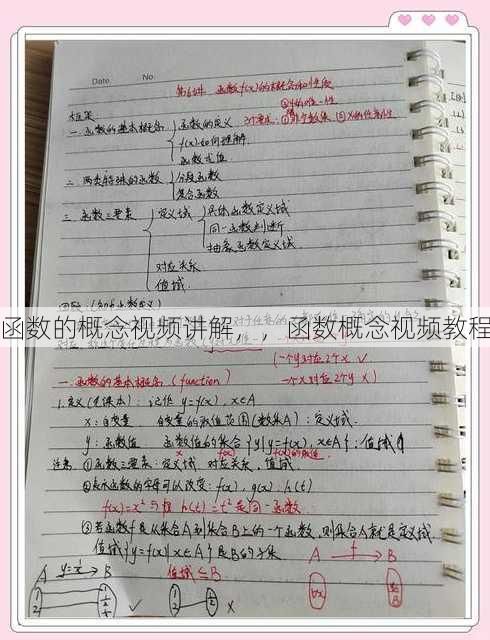 Date. No.
第6讲 函数f(x)的概念和性质
框架
一.函数的基本概念
函数的定义
3个要求:①非空数集 ③x的任意性
②y的唯一性
f(x)如何理解
函数求值
二.两类特殊的函数
分段函数
复合函数
三.函数三要素
定义域
具体函数定义域
同一函数判断
抽象函数定义域
对应关系
值域
函数的概念视频讲解，，函数概念视频教程
(一个y对应2个x ✓
一个x对应2个y ×
一.函数的基本概念 (function)
1.定义(见课本):记作 y=f(x), x∈A
x:自变量 自变量的取值范围(数集A):定义域
y:函数值 函数值的集合{y|y=f(x), x∈A}:值域
注意 ①函数三要素:定义域,对应关系,值域
②表示函数的字母可以改变:f(x), g(x), h(t)
f(x)=x²与 h(t)=t²是同一函数
③若函数f是从集合A到集合B上的一个函数,则集合A就是定义域
值域{y=f(x)|x∈A}是B的子集
A f B
A y=1/x B
值域⊆B
1
2
1
2
×